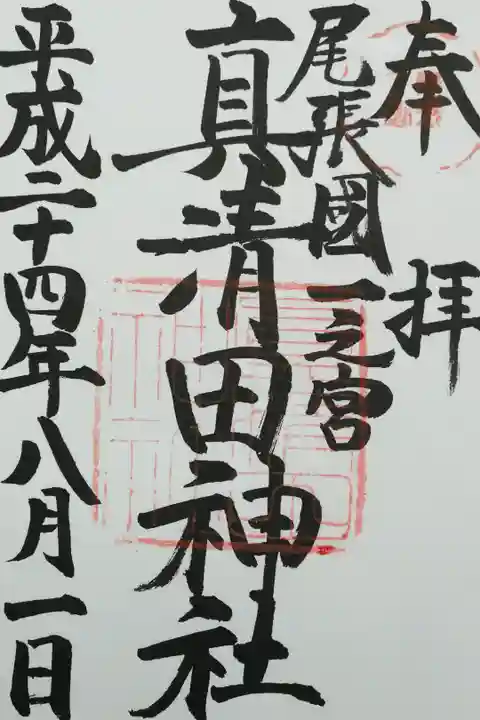 奉拝
尾張國一之宮
真清田神社
平成二十四年八月一日